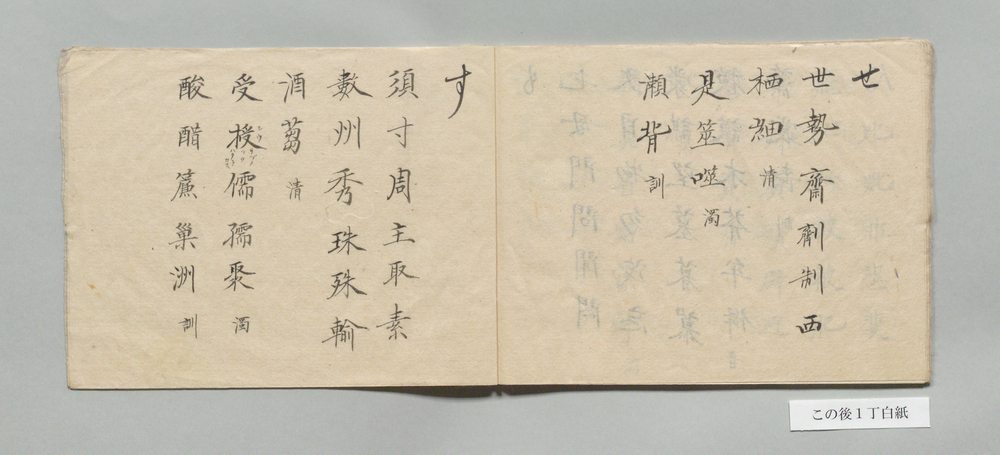 せ
世勢齋劑制西
栖細 清
是筮噬 濁
瀬背 訓
す
須寸周主取素
數州秀珠殊輸
酒芻 清
受授儒孺聚 濁
酸醋簾巣洲 訓
この後１丁白紙